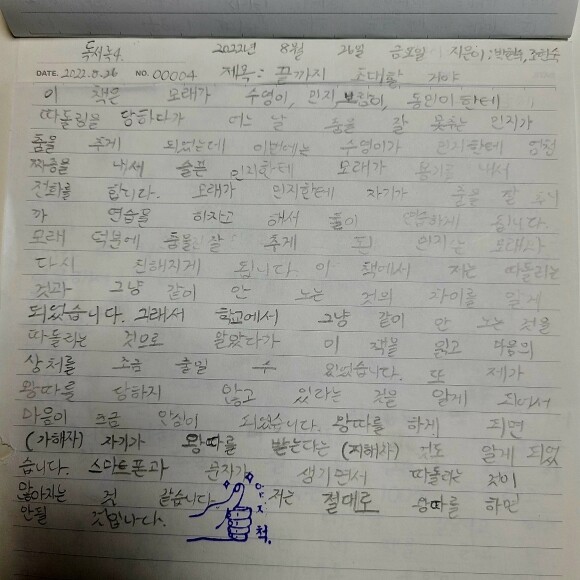 독서록4. 2022년 8월 26일 금요일 지은이: 박현숙, 조현숙
DATE. 2022.8.26 NO. 00004 제목: 끝까지 초대할 거야
이 책은 모래가 수영이, 민지, 보람이, 동민이한테
따돌림을 당하다가 어느 날 춤을 잘 못추는 민지가
춤을 추게 되었는데 이번에는 수영이가 민지한테
짜증을 내서 슬픈 민지한테 모래가 용기를 내서
전화를 합니다. 모래가 민지한테 자기가 춤을 잘 추니
까 연습을 하자고 해서 둘이 연습하게 됩니다.
모래 덕분에 춤을 잘 추게 된 민지는 모래와
다시 친해지게 됩니다. 이 책에서 저는 따돌리는
것과 그냥 같이 안 노는 것의 차이를 알게
되었습니다. 그래서 학교에서 그냥 같이 안 노는 것을
따돌리는 것으로 알았다가 이 책을 읽고 마음의
상처를 조금 줄일 수 있었습니다. 또 제가
왕따를 당하지 않고 있다는 것을 알게 되어서
마음이 조금 안심이 되었습니다. 왕따를 하게 되면
(가해자) 자기가 왕따를 받는다는 (피해자) 것도 알게 되었
습니다. 스마트폰과 문자가 생기면서 따돌리는 것이
많아지는 것 같습니다. 저는 절대로 왕따를 하면
안될 것입니다.
척